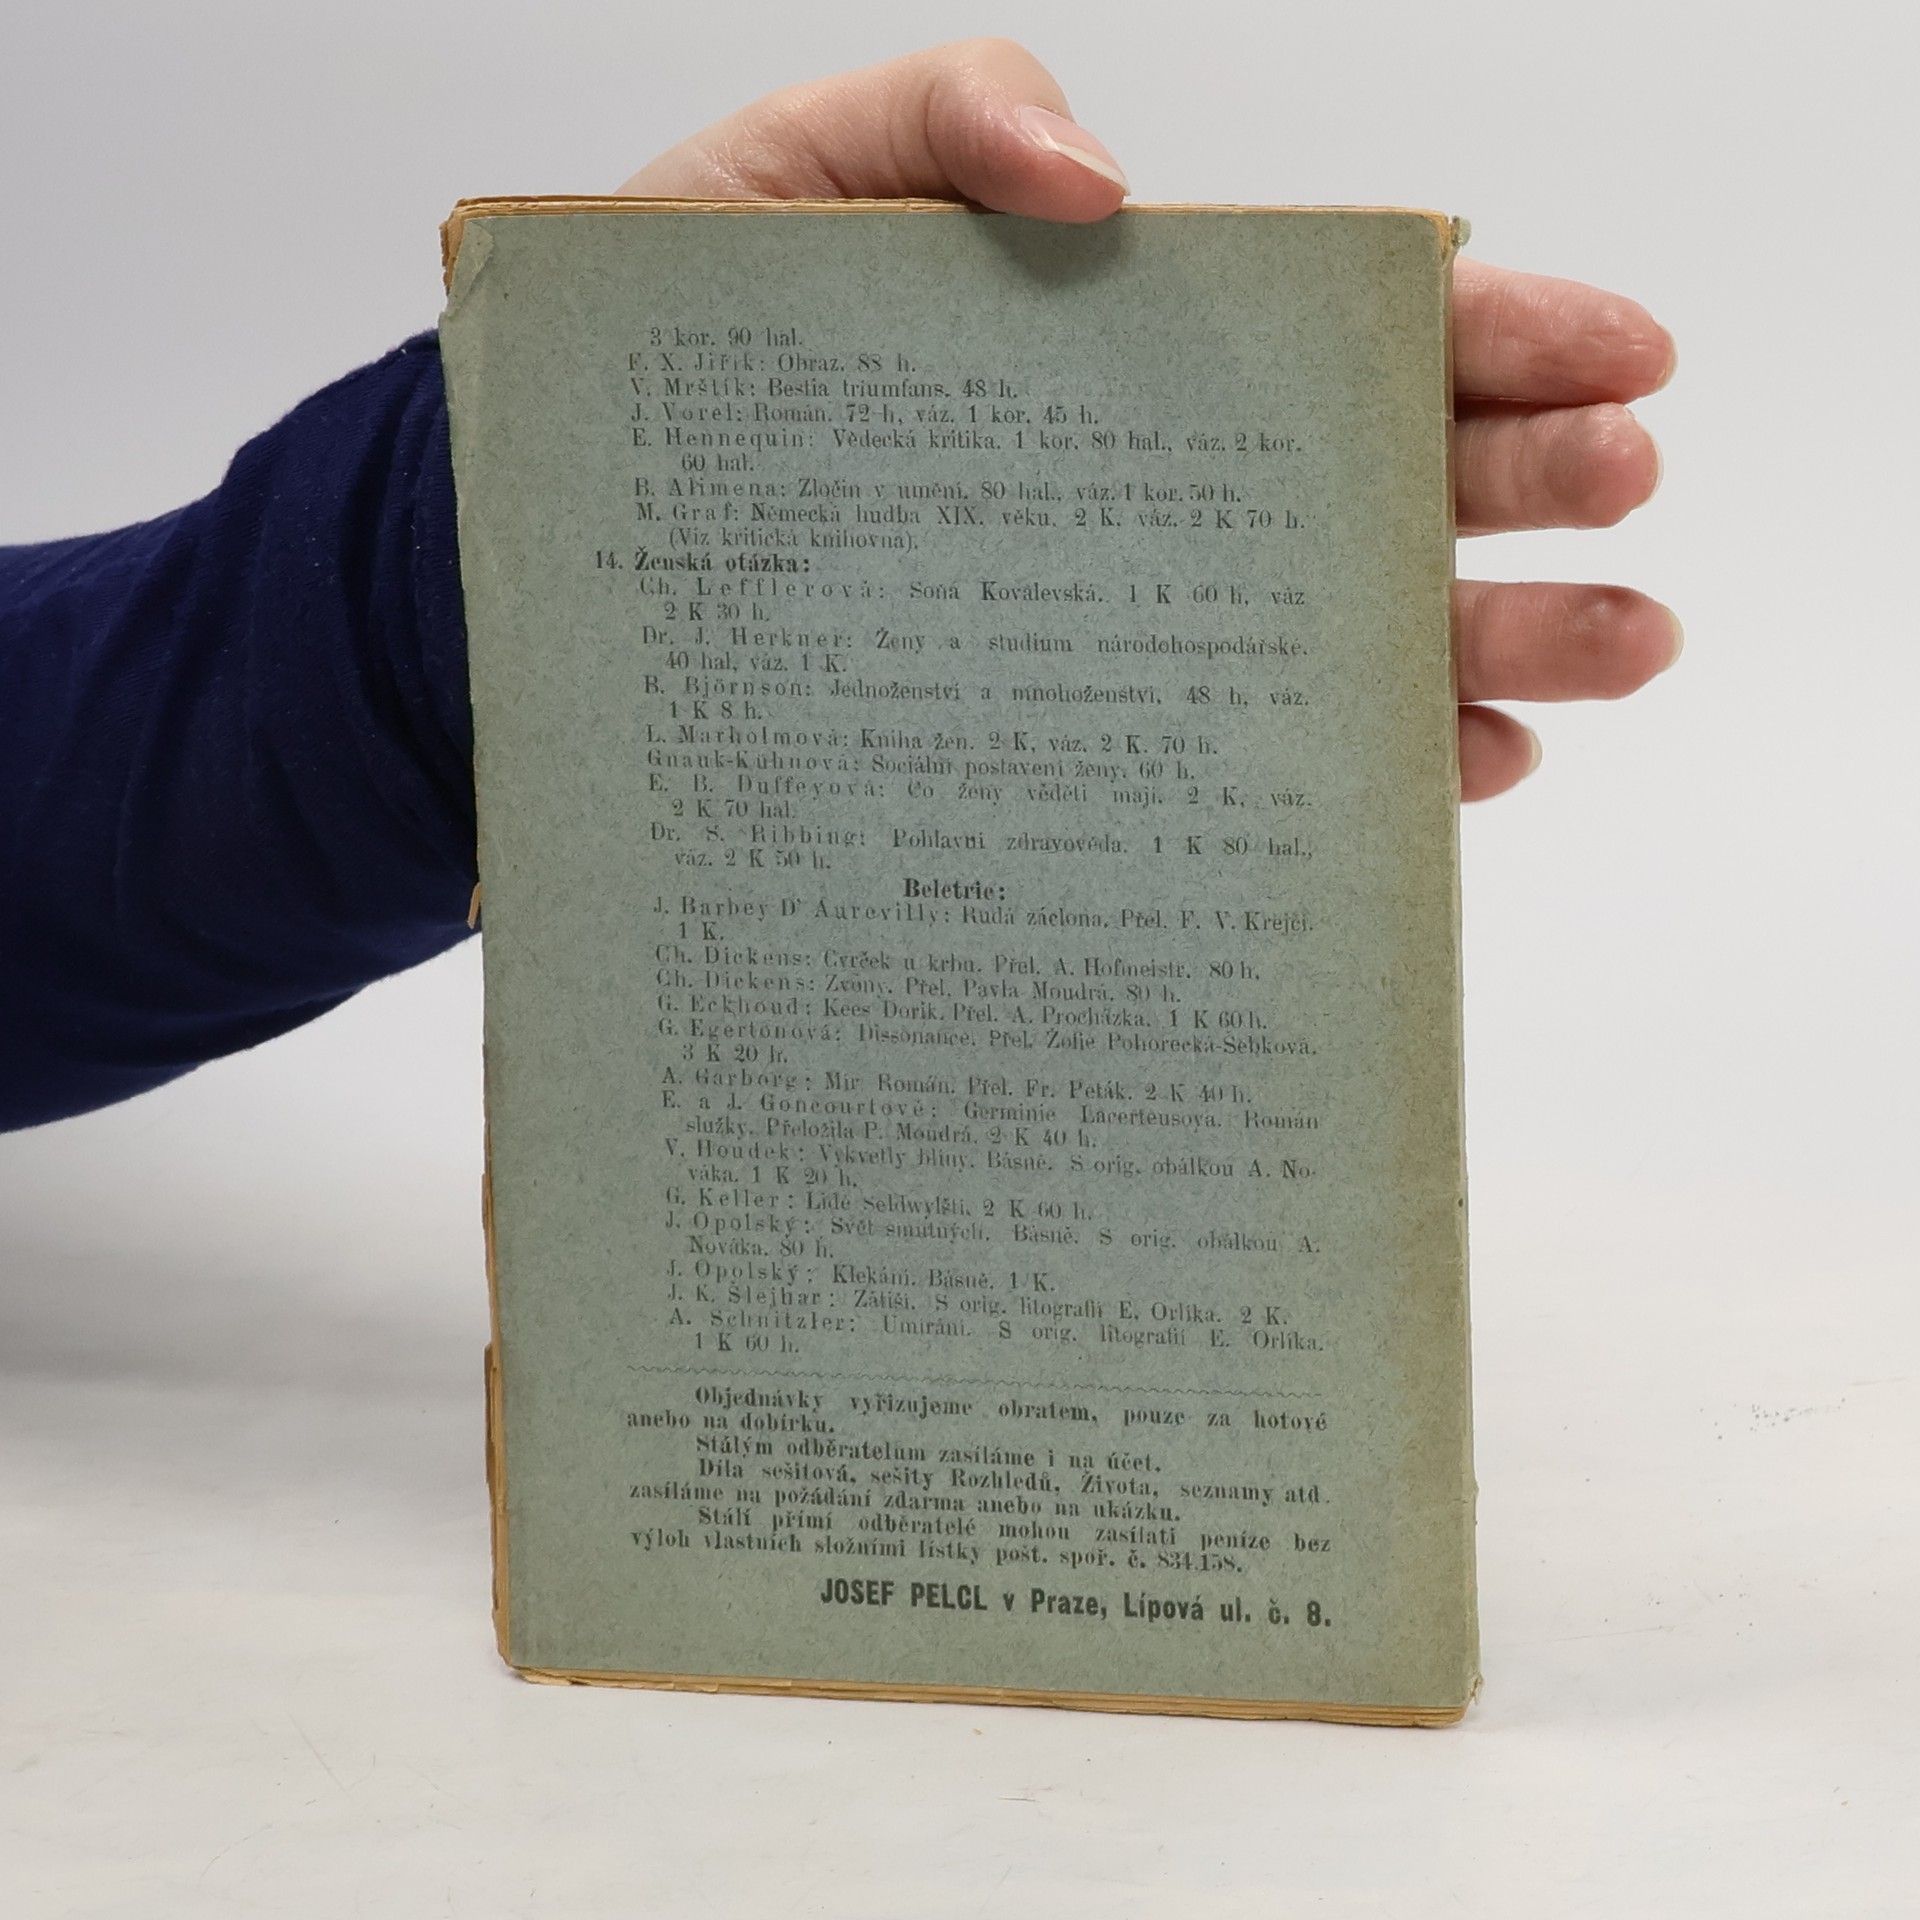 3 kor. 90 hal.
F. X. Jiřík: Obraz. 88 h.
V. Mrštík: Bestia triumfans. 48 h.
J. Vorel: Román. 72 h, váz. 1 kor. 45 h.
E. Hennequin: Vědecká kritika. 1 kor. 80 hal., váz. 2 kor.
60 hal.
B. Alimena: Zločin v umění. 80 hal., váz. 1 kor. 50 h.
M. Graf: Německá hudba XIX. věku. 2 K. váz. 2 K 70 h.
(Viz kritická knihovna).
14. Ženská otázka:
Ch. Lefflerová: Soňa Kovalevská. 1 K 60 h, váz
2 K 30 h.
Dr. J. Herkner: Ženy a studium národohospodářské.
40 hal, váz. 1 K.
B. Björnson: Jednoženství a mnohoženství. 48 h, váz.
1 K 8 h.
L. Marholmová: Kniha žen. 2 K, váz. 2 K. 70 h.
Gnauk-Kühnová: Sociální postavení ženy. 60 h.
E. B. Duffeyová: Co ženy věděti mají. 2 K, váz.
2 K 70 hal.
Dr. S. Ribbing: Pohlavní zdravověda. 1 K 80 hal.,
váz. 2 K 50 h.
Beletrie:
J. Barbey D' Aurevilly: Rudá záclona. Přel. F. V. Krejčí.
1 K.
Ch. Dickens: Cvrček u krbu. Přel. A. Hofmeistr. 80 h.
Ch. Dickens: Zvony. Přel. Pavla Moudrá. 80 h.
G. Eckhoud: Kees Dorik. Přel. A. Procházka. 1 K 60 h.
G. Egertonová: Dissonance. Přel. Žofie Pohorecká-Šebková.
3 K 20 h.
A. Garborg: Mír Román. Přel. Fr. Peták. 2 K 40 h.
E. a J. Goncourtové: Germinie Lacerteusova. Román
služky. Přeložila P. Moudrá. 2 K 40 h.
V. Houdek: Vykvetly blíny. Básně. S orig. obálkou A. No-
váka. 1 K 20 h.
G. Keller: Lidé Seldwylští. 2 K 60 h.
J. Opolský: Svět smutných. Básně. S orig. obálkou A.
Nováka. 80 h.
J. Opolský: Klekání. Básně. 1 K.
J. K. Šlejhar: Zátiší. S orig. litografií E. Orlíka. 2 K.
A. Schnitzler: Umírání. S orig. litografií E. Orlíka.
1 K 60 h.
Objednávky vyřizujeme obratem, pouze za hotové
anebo na dobírku.
Stálým odběratelům zasíláme i na účet.
Díla sešitová, sešity Rozhledů, Života, seznamy atd.
zasíláme na požádání zdarma anebo na ukázku.
Stálí přímí odběratelé mohou zasílati peníze bez
výloh vlastních složními lístky pošt. spoř. č. 834.158.
JOSEF PELCL v Praze, Lípová ul. č. 8.